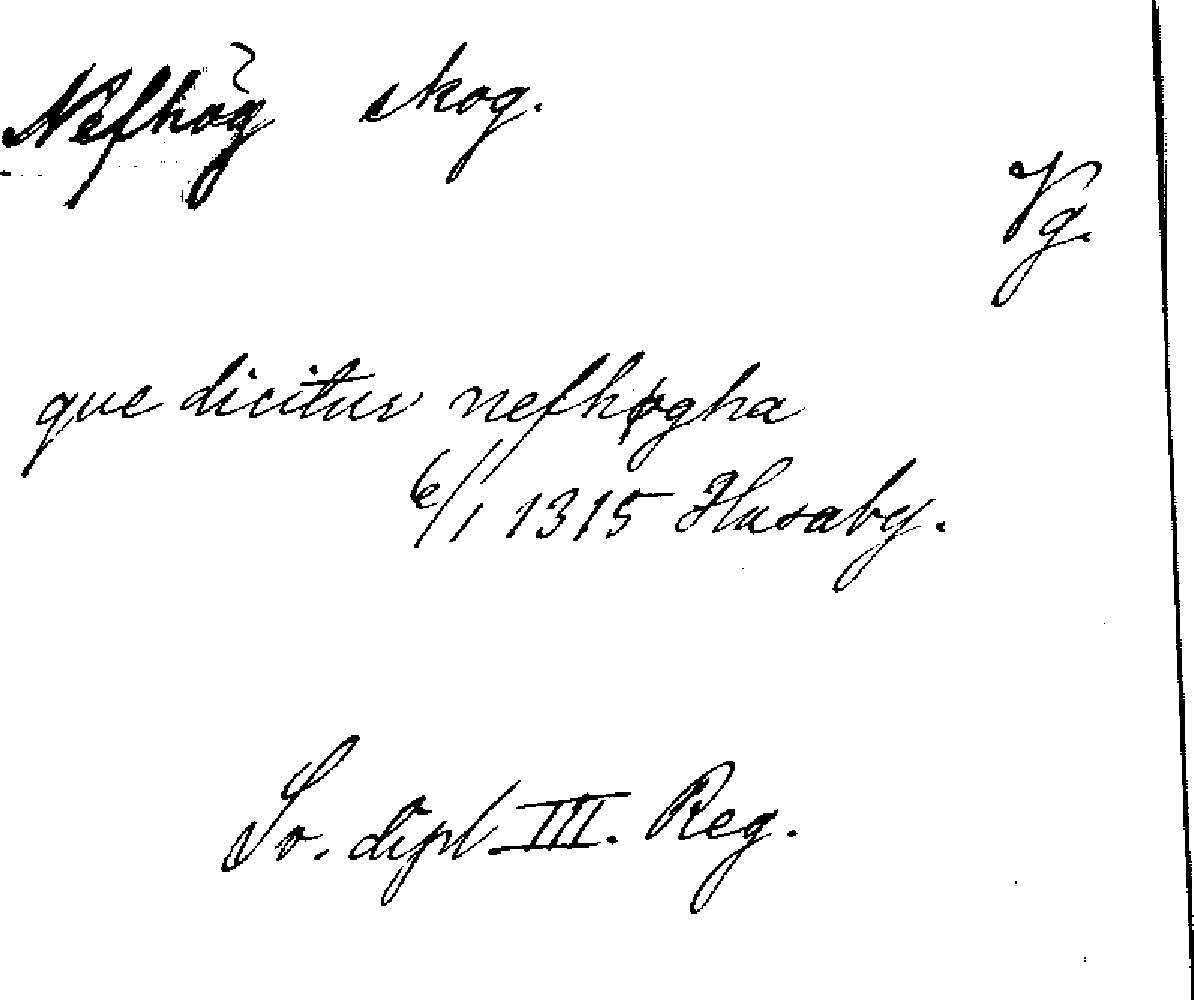 Nefhög skog.
Vg.
que dicitur nefhøgha
6/1 1315 Husaby.
Sv. dipl. III. Reg.